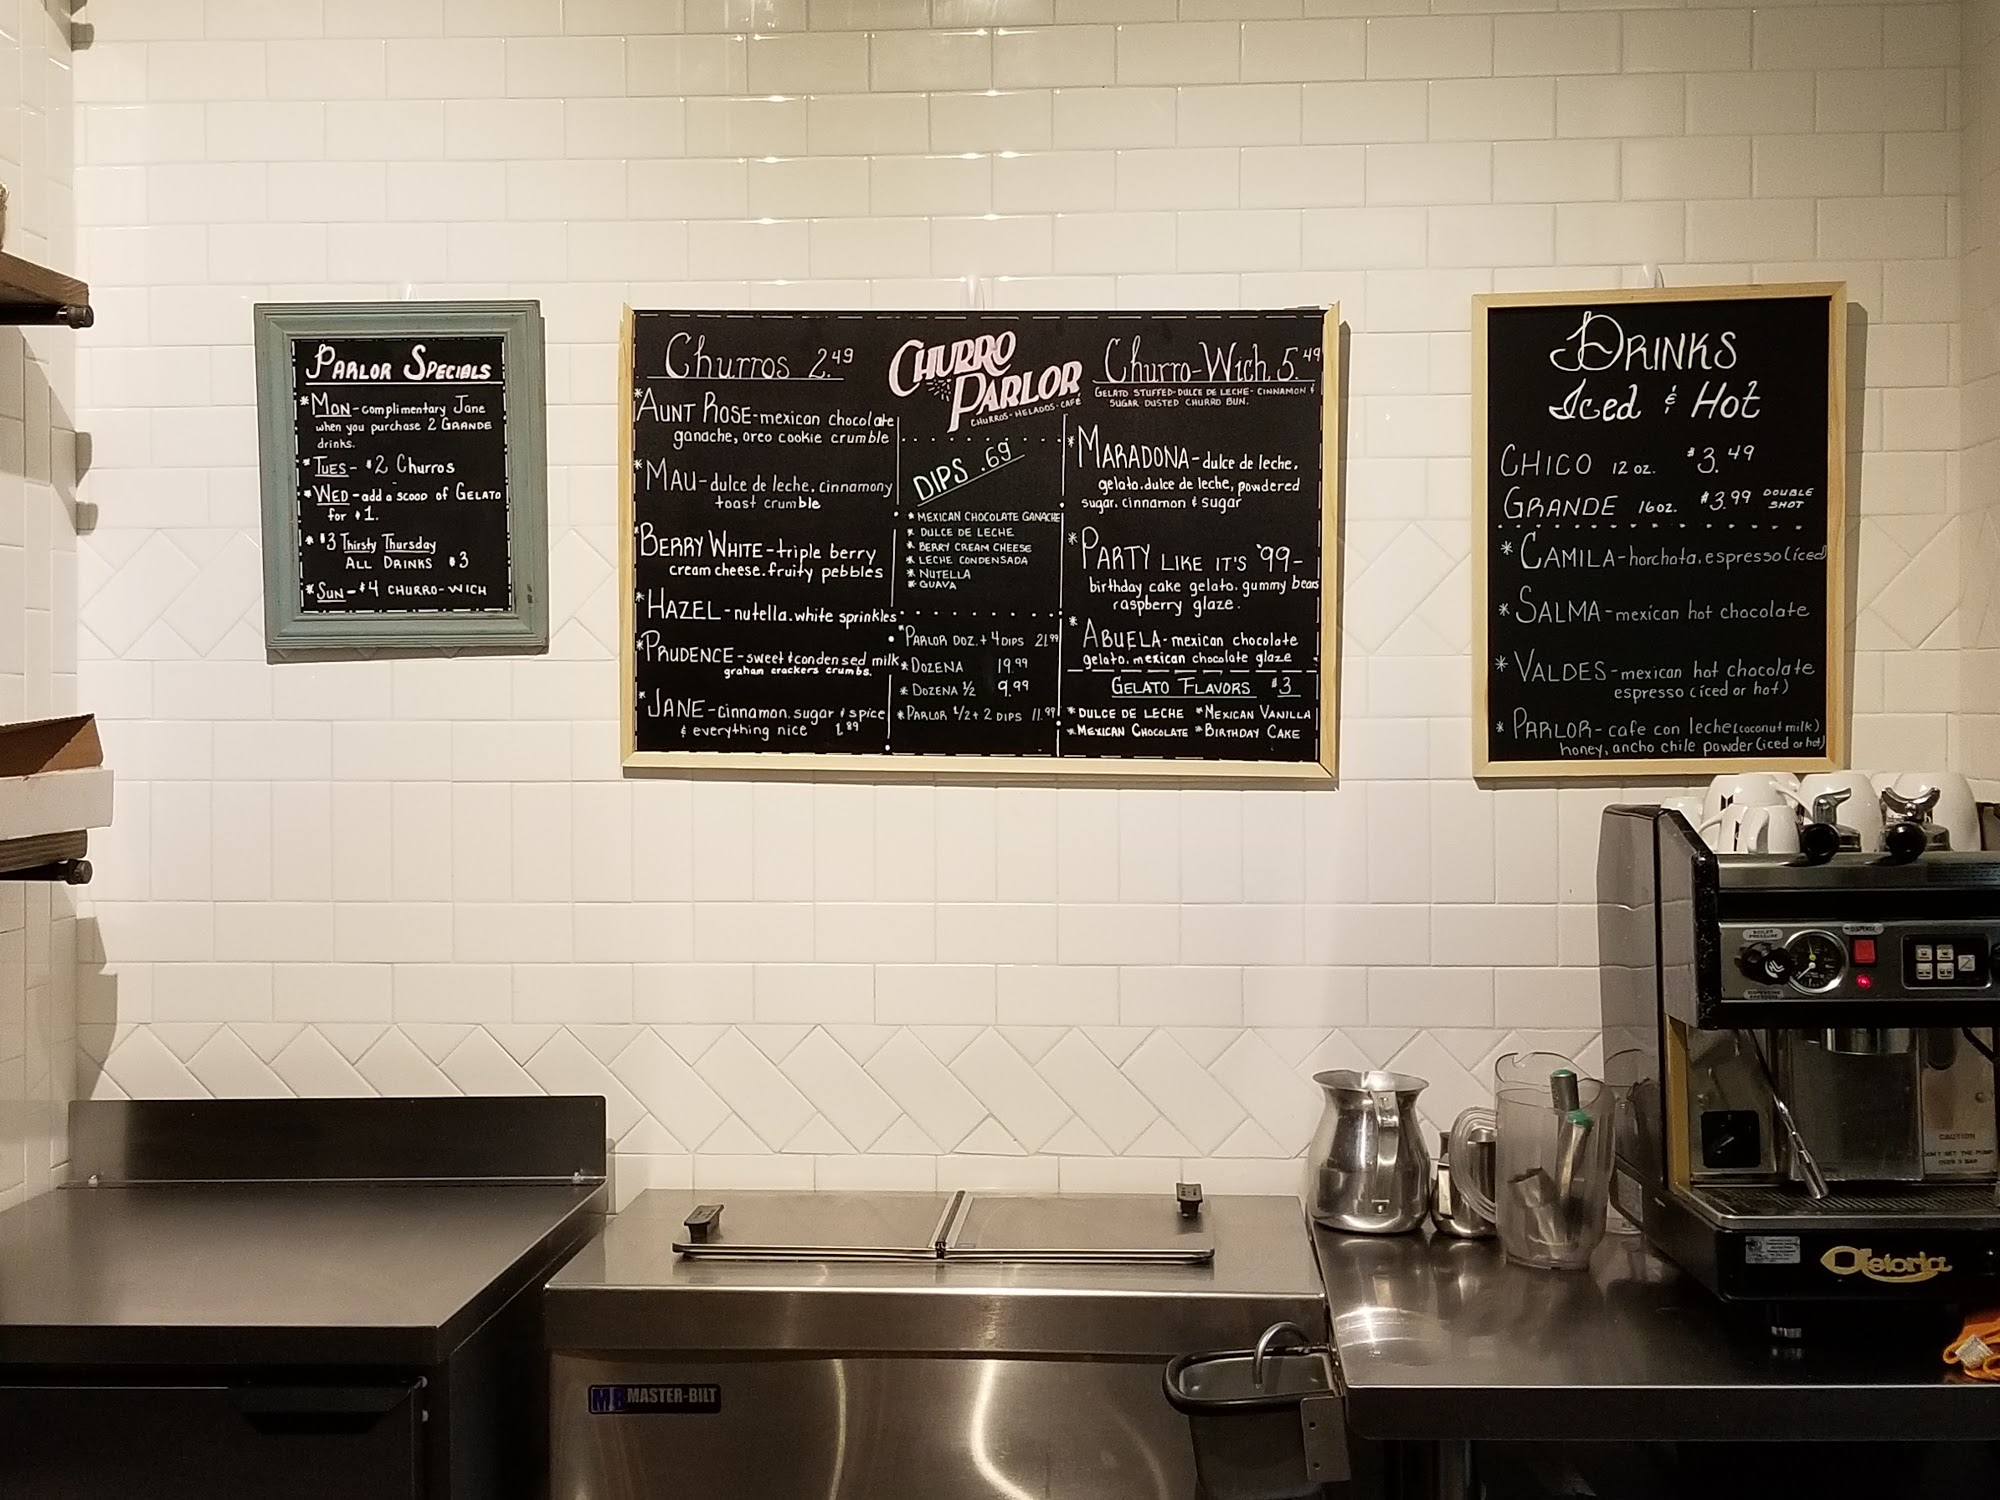 PARLOR SPECIALS
* MON - complimentary Jane
when you purchase 2 GRANDE
drinks.
* TUES - $2 Churros
* WED - add a scoop of GELATO
for $1.
* $3 Thirsty Thursday
ALL DRINKS $3
* SUN - $4 CHURRO-WICH
Churros 2.49
* AUNT ROSE - mexican chocolate
ganache, oreo cookie crumble
* MAU - dulce de leche, cinnamony
toast crumble
* BERRY WHITE - triple berry
cream cheese. fruity pebbles
* HAZEL - nutella. white sprinkles
* PRUDENCE - sweet & condensed milk
graham crackers crumbs.
* JANE - cinnamon. sugar & spice
& everything nice 1.89
CHURRO
PARLOR
CHURROS-HELADOS-CAFÉ
DIPS .69
* MEXICAN CHOCOLATE GANACHE
* DULCE DE LECHE
* BERRY CREAM CHEESE
* LECHE CONDENSADA
* NUTELLA
* GUAVA
* PARLOR DOZ. + 4 DIPS 21.99
* DOZENA 19.99
* DOZENA 1/2 9.99
* PARLOR 1/2 + 2 DIPS 11.99
Churro-Wich 5.49
GELATO STUFFED-DULCE DE LECHE-CINNAMON &
SUGAR DUSTED CHURRO BUN.
* MARADONA - dulce de leche.
gelato. dulce de leche, powdered
sugar. cinnamon & sugar
* PARTY LIKE IT'S '99 -
birthday cake gelato. gummy bears
raspberry glaze.
* ABUELA - mexican chocolate
gelato. mexican chocolate glaze
GELATO FLAVORS $3
* DULCE DE LECHE * MEXICAN VANILLA
* MEXICAN CHOCOLATE * BIRTHDAY CAKE
DRINKS
Iced & Hot
CHICO 12 oz. $3.49
GRANDE 16 oz. $3.99 DOUBLE SHOT
* CAMILA - horchata. espresso (iced
* SALMA - mexican hot chocolate
* VALDES - mexican hot chocolate
espresso (iced or hot)
* PARLOR - cafe con leche (coconut milk)
honey, ancho chile powder (iced or hot)
BOILER PRESSURE
DISPENSE
CAUTION
DON'T SET THE PUMP
OVER 9 BAR
Astoria
MB MASTER-BILT